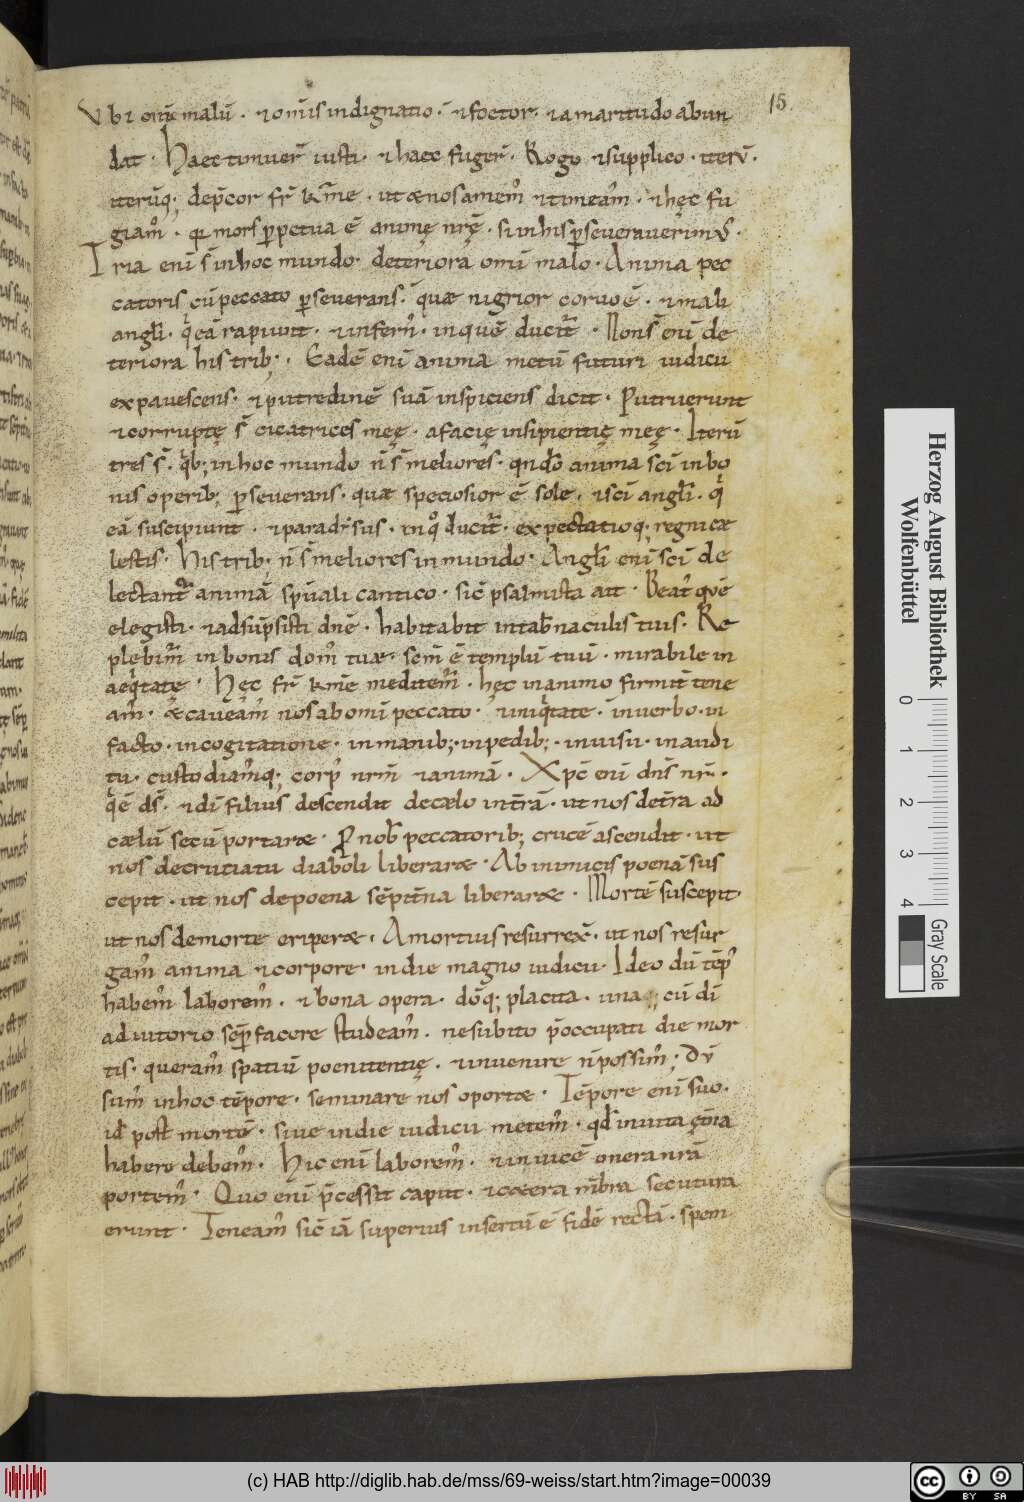 15
Vbi om̄e malū · & om̄is indignatio · & foetor · & amaritudo abun
dat · Haec timuer̄ iusti · & haec fuger̄ · Rogo & supplico · iterū ·
iterūq; dep̄cor fr̄ kr̄me · ut & nos amem̄ & timeam̄ · & hęc fu
giam̄ · q̇a mors p̱petua ē animę nrę̄ · si in his p̱severaverimꝰ ·
Tria eni s̄ in hoc mundo · deteriora omi malo · Anima pec
catoris cū peccato p̱severans · quae nigrior corvo ē · & mali
angli · q̇ eā rapiunt · & infern̄ · in quē ducit̄ · Non s̄ eni de
teriora his trib; · Eadē eni anima metū futuri iudicii
expauescens · & putredinē suā inspiciens dicit · Putruerunt
& corruptę s̄ cicatrices meę · a facię insipientię meę · Iterū
tres s̄ · q̇b; in hoc mundo n̄ s̄ meliores · qn̄do anima sc̄i in bo
nis operib; p̱severans · quae speciosior ē sole · & sc̄i angli · q̇
eā suscipiunt · & paradisus · in q̊ ducit̄ · expectatioq; regni cæ
lestis · His trib; n̄ s̄ meliores in mundo · Angli eni sc̄i de
lectant̄ animā sp̄uali cantico · sic̄ psalmista ait · Beat' quē
elegisti · & adsūpsisti dn̄e · habitabit in tab̄naculis tuis · Re
plebim̄ in bonis dom̄ tuae · scm̄ ē templū tuū · mirabile in
aeq̇tatę · Hęc fr̄ km̄e meditem̄ · hęc in animo firmit̄ tene
am̄ · & caveam̄ nos ab omi peccato · iniq̇tate · in verbo · in
facto · in cogitatione · in manib; · in pedib; · in visu · in audi
tu · custodiam̄q; corp̄ nrm̄ & animā · Xp̄c eni dn̄s nr̄ ·
q̇ ē ds̄ · & di filius descendit de cælo in t̄rā · ut nos de t̄ra ad
cælū secū portaret · P̱ nob̄ peccatorib; crucē ascendit · ut
nos de cruciatu diaboli liberaret · Ab inimicis poenā sus
cepit · ut nos de poena sēpit̄na liberaret · Mortē suscepit
ut nos de morte eriperet · A mortuis resurrex̄ · ut nos resur
gam̄ anima & corpore · in die magno iudicii · Ideo dū tēp̄
habem̄ laborem̄ · & bona opera · dōq; placita · una cū di
adiutorio sēp̱ facere studeam̄ · ne subito p̄occupati die mor
tis · queram̄ spatiū poenitentię · & invenire n̄ possim̄ · Dū
sum̄ in hoc tēpore · seminare nos oportet · Tēpore eni suo ·
id̄ post mortē · sive in die iudicii metem̄ · qd̄ in vita
habere debem̄ · Hic eni laborem̄ · & invicē onera nrā
portem̄ · Quo eni p̄cessit caput · & cætera mēbra secutura
erunt · Teneam̄ sic̄ iā superius insertū ē fidē rectā · spem
Herzog August Bibliothek
Wolfenbüttel
0 1 2 3 4
Gray Scale
(c) HAB http://diglib.hab.de/mss/69-weiss/start.htm?image=00039
cc BY SA